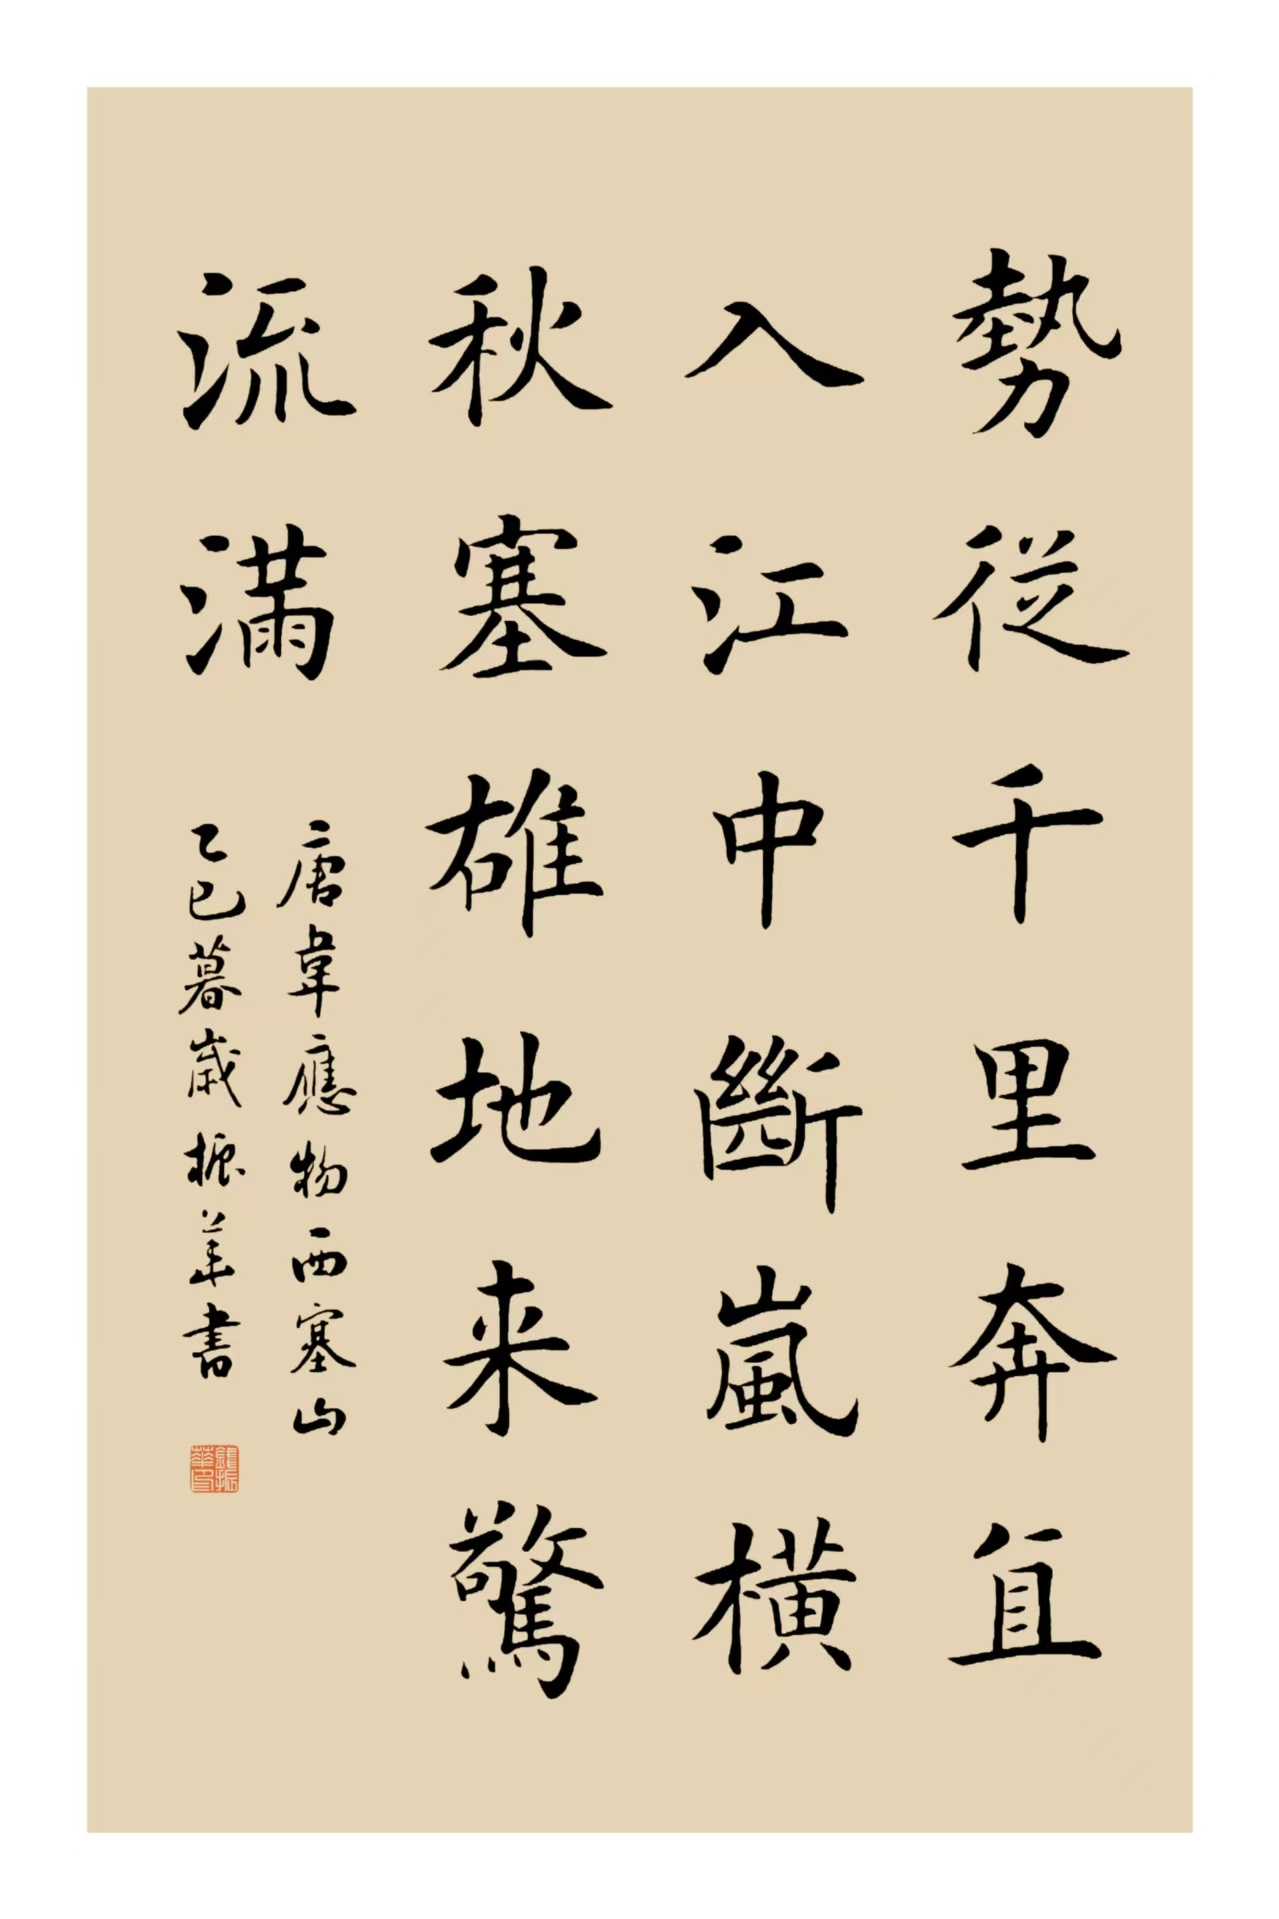 勢從千里奔直
入江中斷嵐橫
秋塞雄地来驚
流満
唐韋應物西塞山
乙巳暮歲振華書